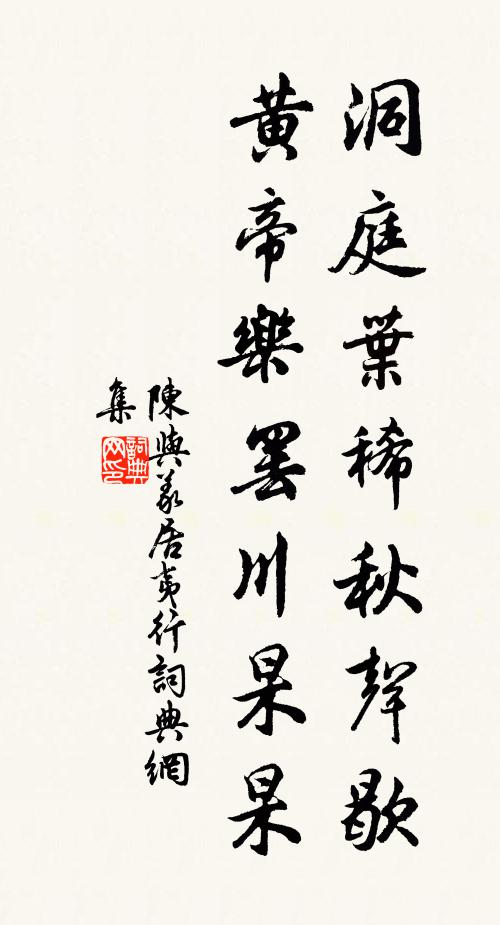 洞庭葉稀秋聲歇
黃帝樂罷川杲杲
陳與義居夷行詞典網
集
詞典網印